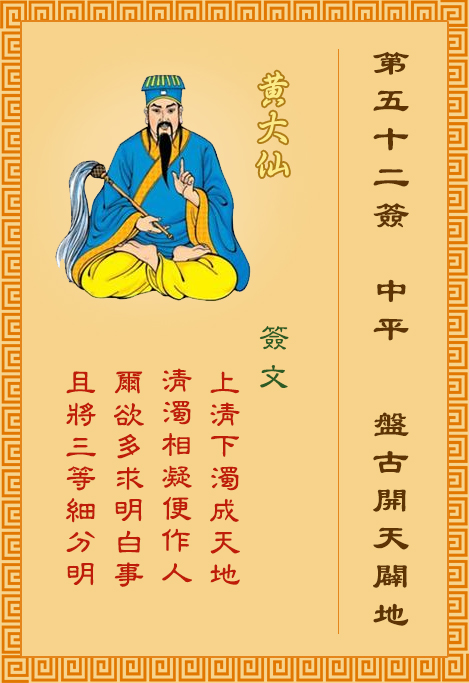 第五十二簽 中平 盤古開天闢地
黃大仙
簽文
上清下濁成天地
清濁相凝便作人
爾欲多求明白事
且將三等細分明